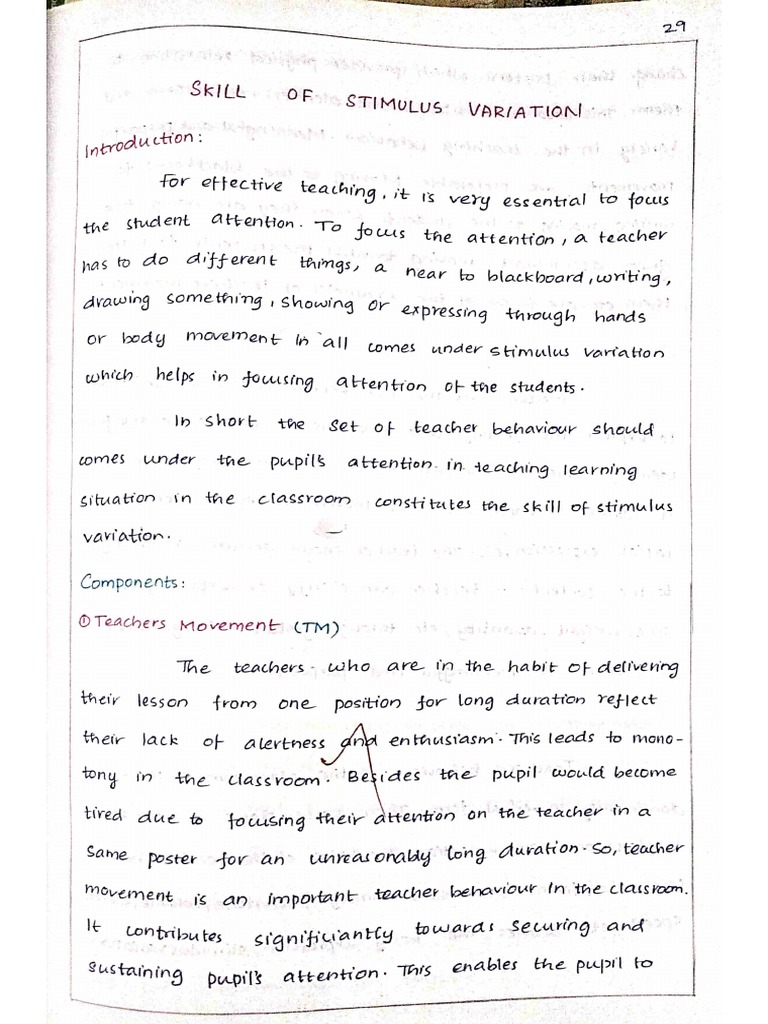 29
SKILL OF STIMULUS VARIATION
Introduction:
For effective teaching, it is very essential to focus
the student attention. To focus the attention, a teacher
has to do different things, a near to blackboard, writing,
drawing something, showing or expressing through hands
or body movement in all comes under stimulus variation
which helps in focusing attention of the students.
In short the set of teacher behaviour should
comes under the pupil's attention in teaching learning
situation in the classroom constitutes the skill of stimulus
variation.
Components:
① Teachers Movement (TM)
The teachers. who are in the habit of delivering
their lesson from one position for long duration reflect
their lack of alertness and enthusiasm. This leads to mono-
tony in the classroom. Besides the pupil would become
tired due to focusing their attention on the teacher in a
same poster for an unreasonably long duration. So, teacher
movement is an important teacher behaviour in the classroom.
It contributes significiantly towards securing and
sustaining pupil's attention. This enables the pupil to